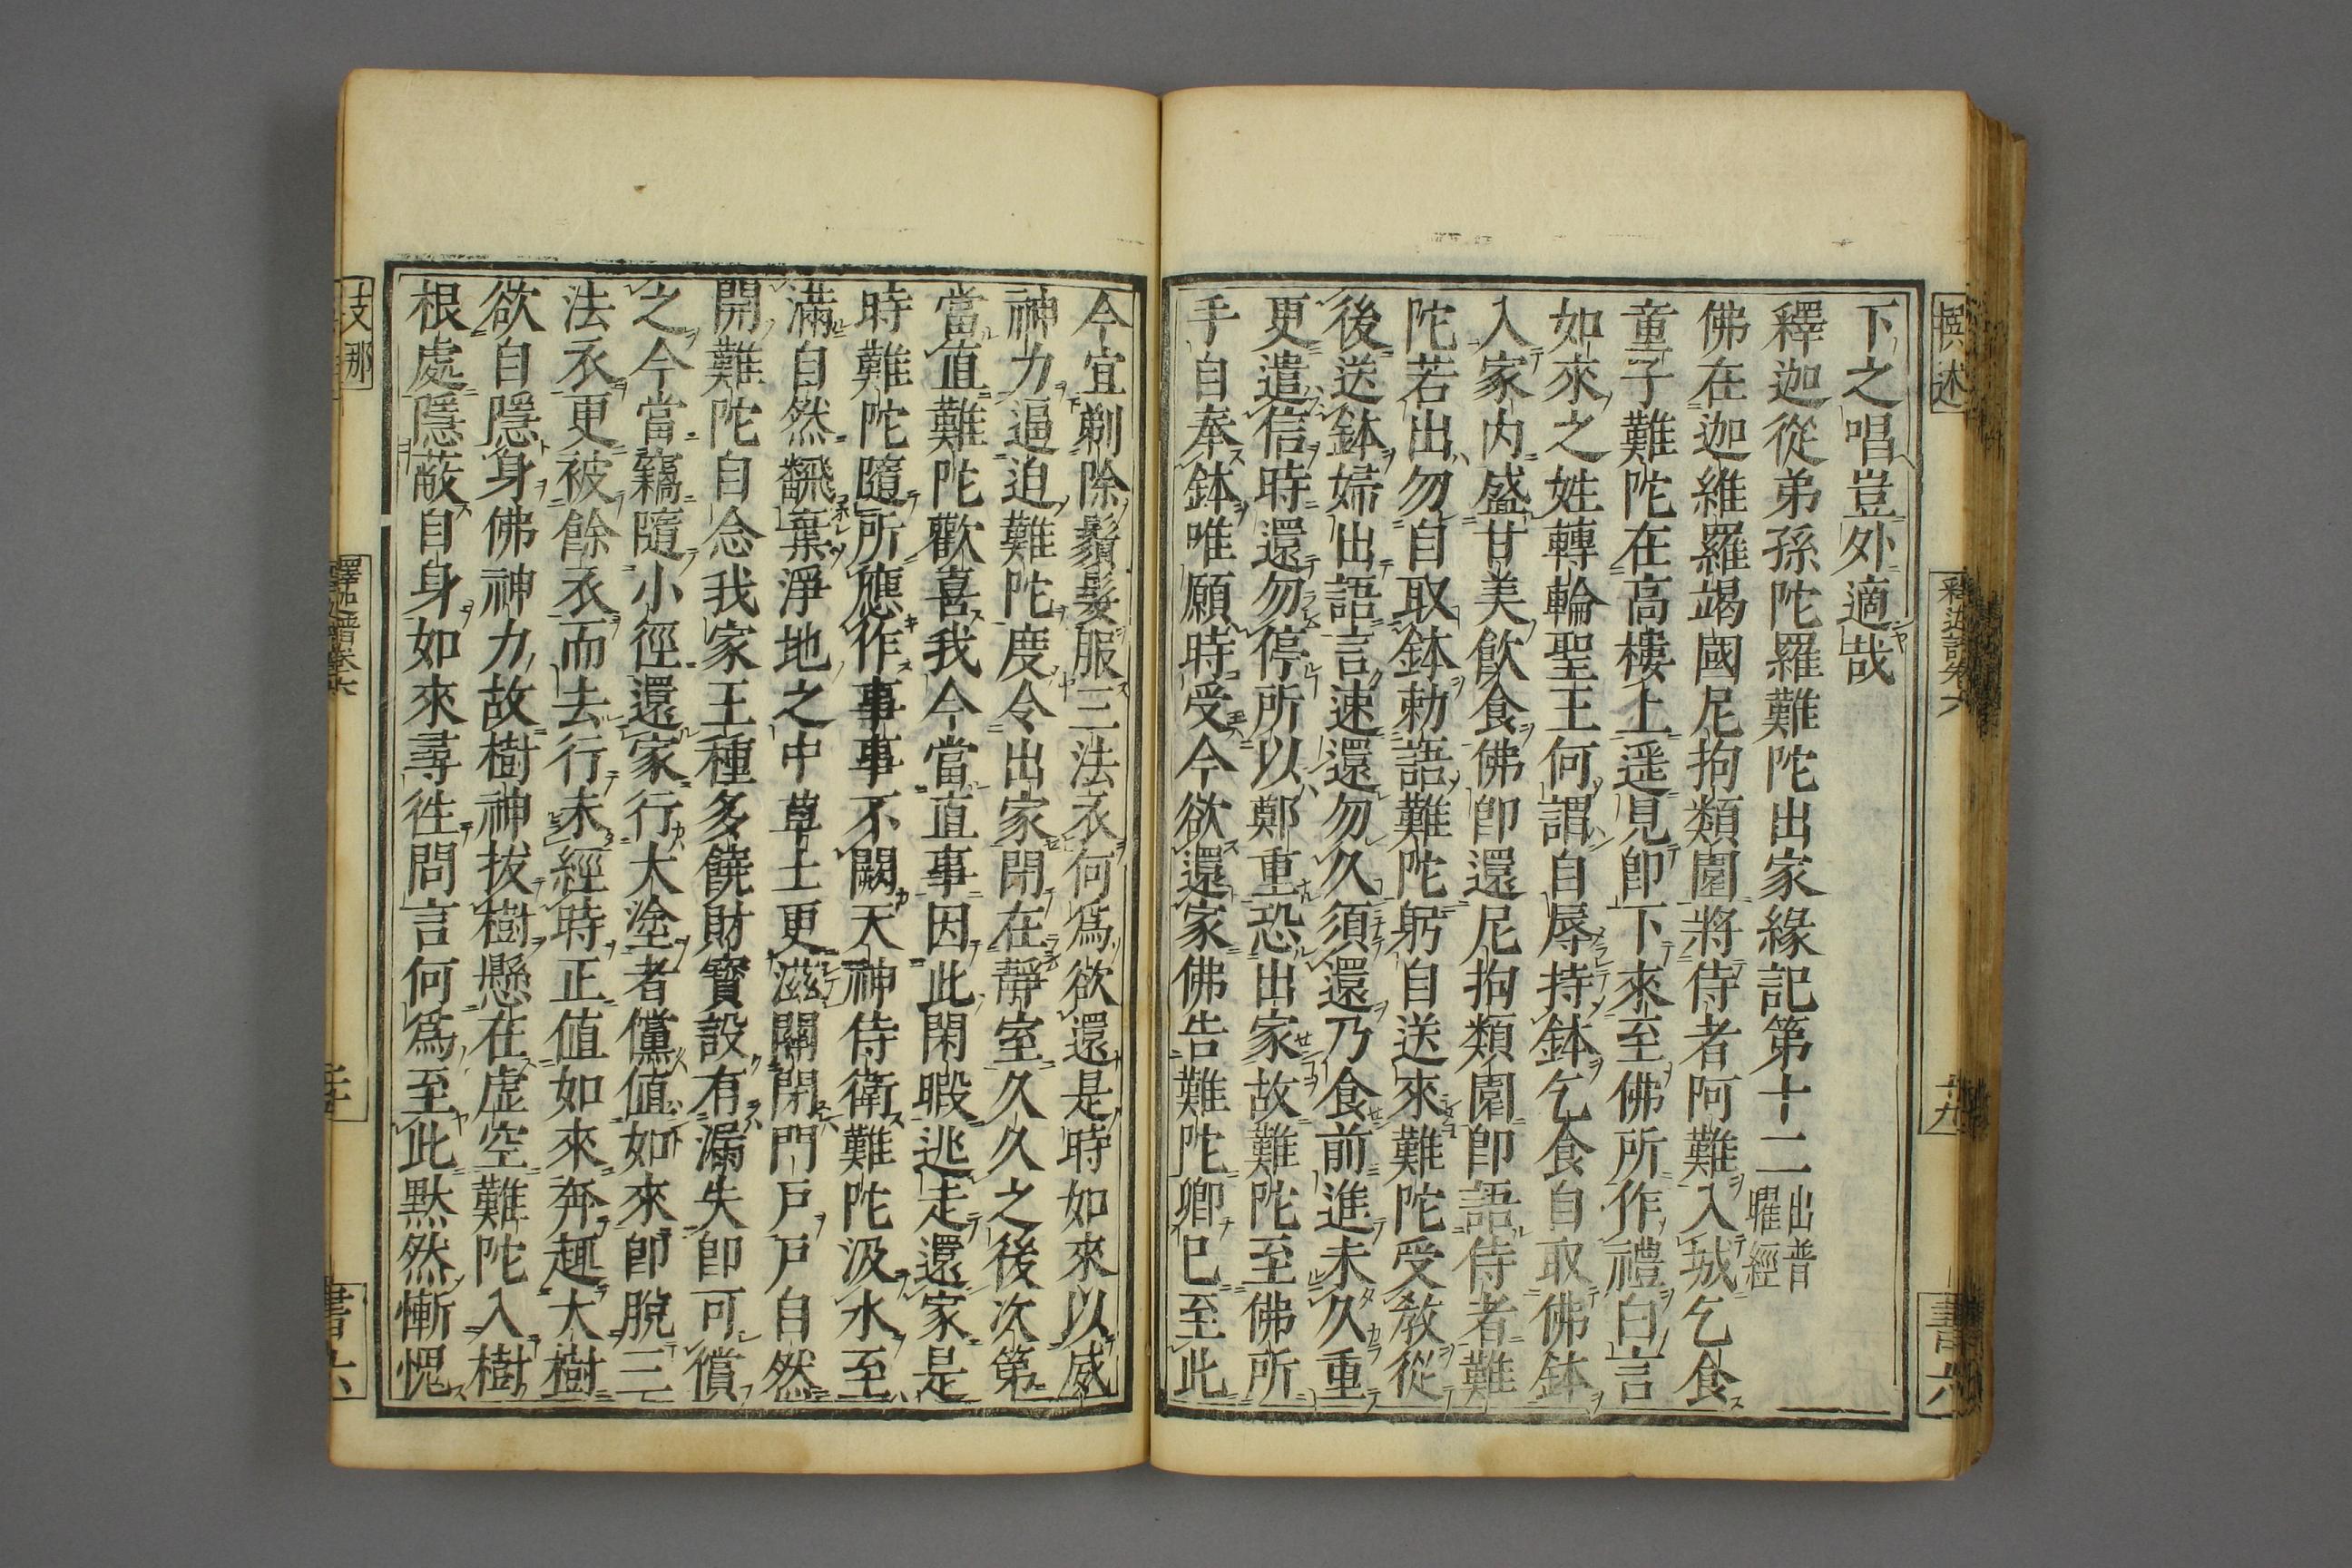 撰述
釋迦譜卷六
十九
書六
下之唱豈外適哉
釋迦從弟孫陀羅難陀出家緣記第十二
出普
曜經
佛在迦維羅竭國尼拘類園將侍者阿難入城乞食
童子難陀在高樓上遥見卽下來至佛所作禮白言
如來之姓轉輪聖王何謂自辱持鉢乞食自取佛鉢
入家内盛甘美飲食佛卽還尼拘類園卽語侍者難
陀若出勿自取鉢勅語難陀躬自送來難陀受教從
後送鉢婦出語言速還勿久須還乃食前進未久重
更遣信時還勿停所以鄭重恐出家故難陀至佛所
手自奉鉢唯願時受今欲還家佛告難陀卿已至此
今宜剃除鬚髮服三法衣何爲欲還是時如來以威
神力逼迫難陀度令出家閉在靜室久久之後次第
當值難陀歡喜我今當直事因此閑暇逃走還家是
時難陀隨所應作事事不闕天神侍衛難陀汲水至
滿自然飜棄淨地之中草土更滋關閉門戶戶自然
開難陀自念我家王種多饒財寳設有漏失卽可償
之今當竊隨小徑還家行大塗者儻值如來卽脫三
法衣更被餘衣而去行未經時正值如來奔趣大樹
欲自隱身佛神力故樹神拔樹懸在虛空難陀入樹
根處隱蔽自身如來尋徃問言何爲至此默然慚愧
支那
釋迦譜卷六
書六